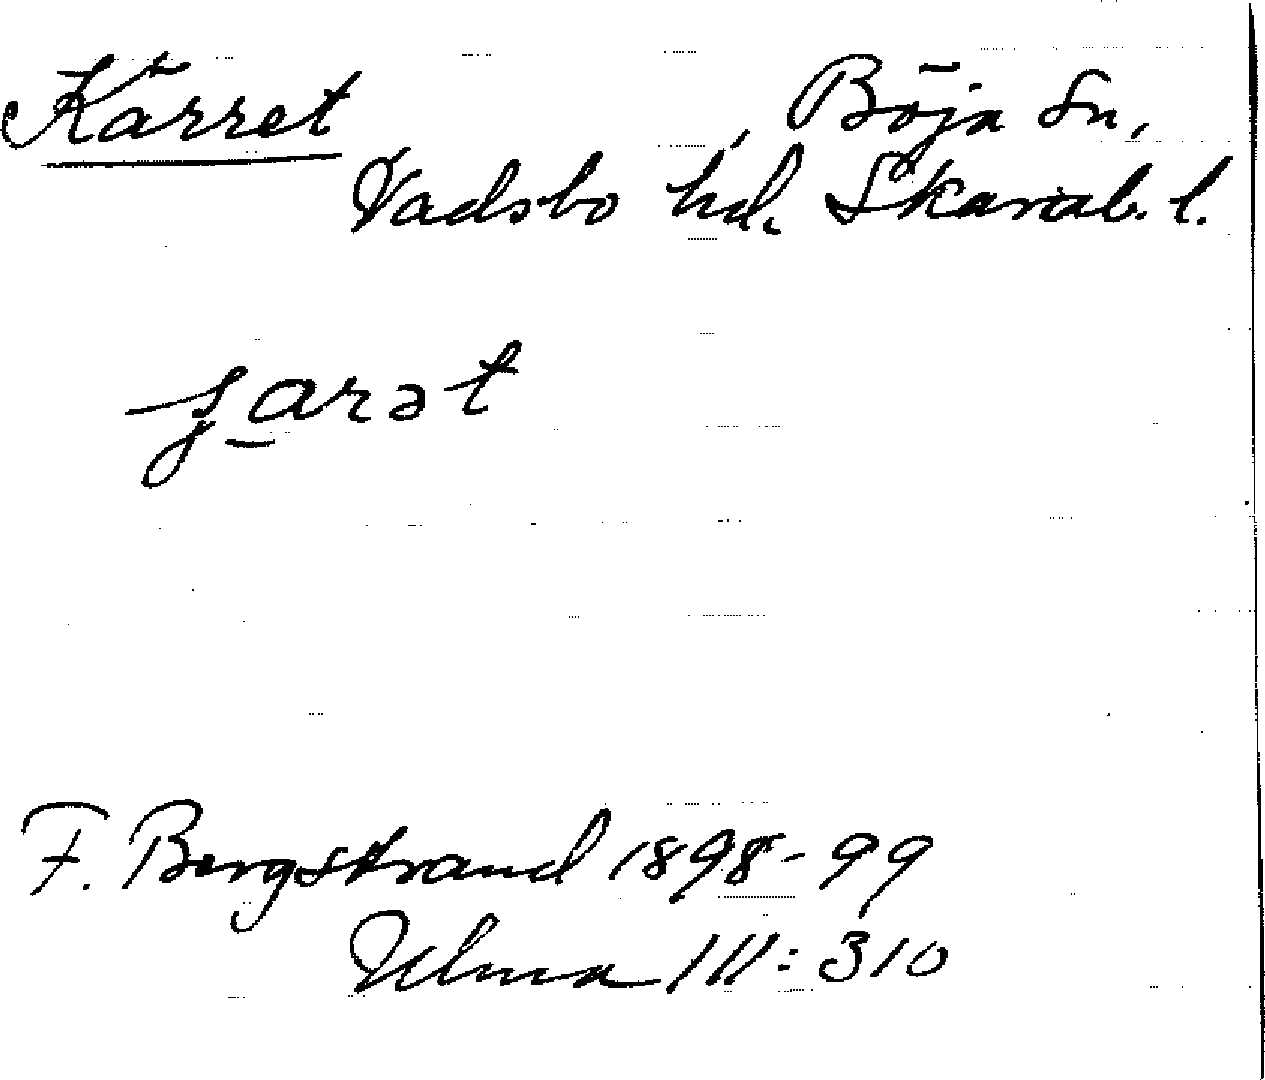 Kärret, Böja sn,
Vadsbo hd. Skarab. l.
-ʂarət
F. Bergstrand 1898-99
Ulma 111:310